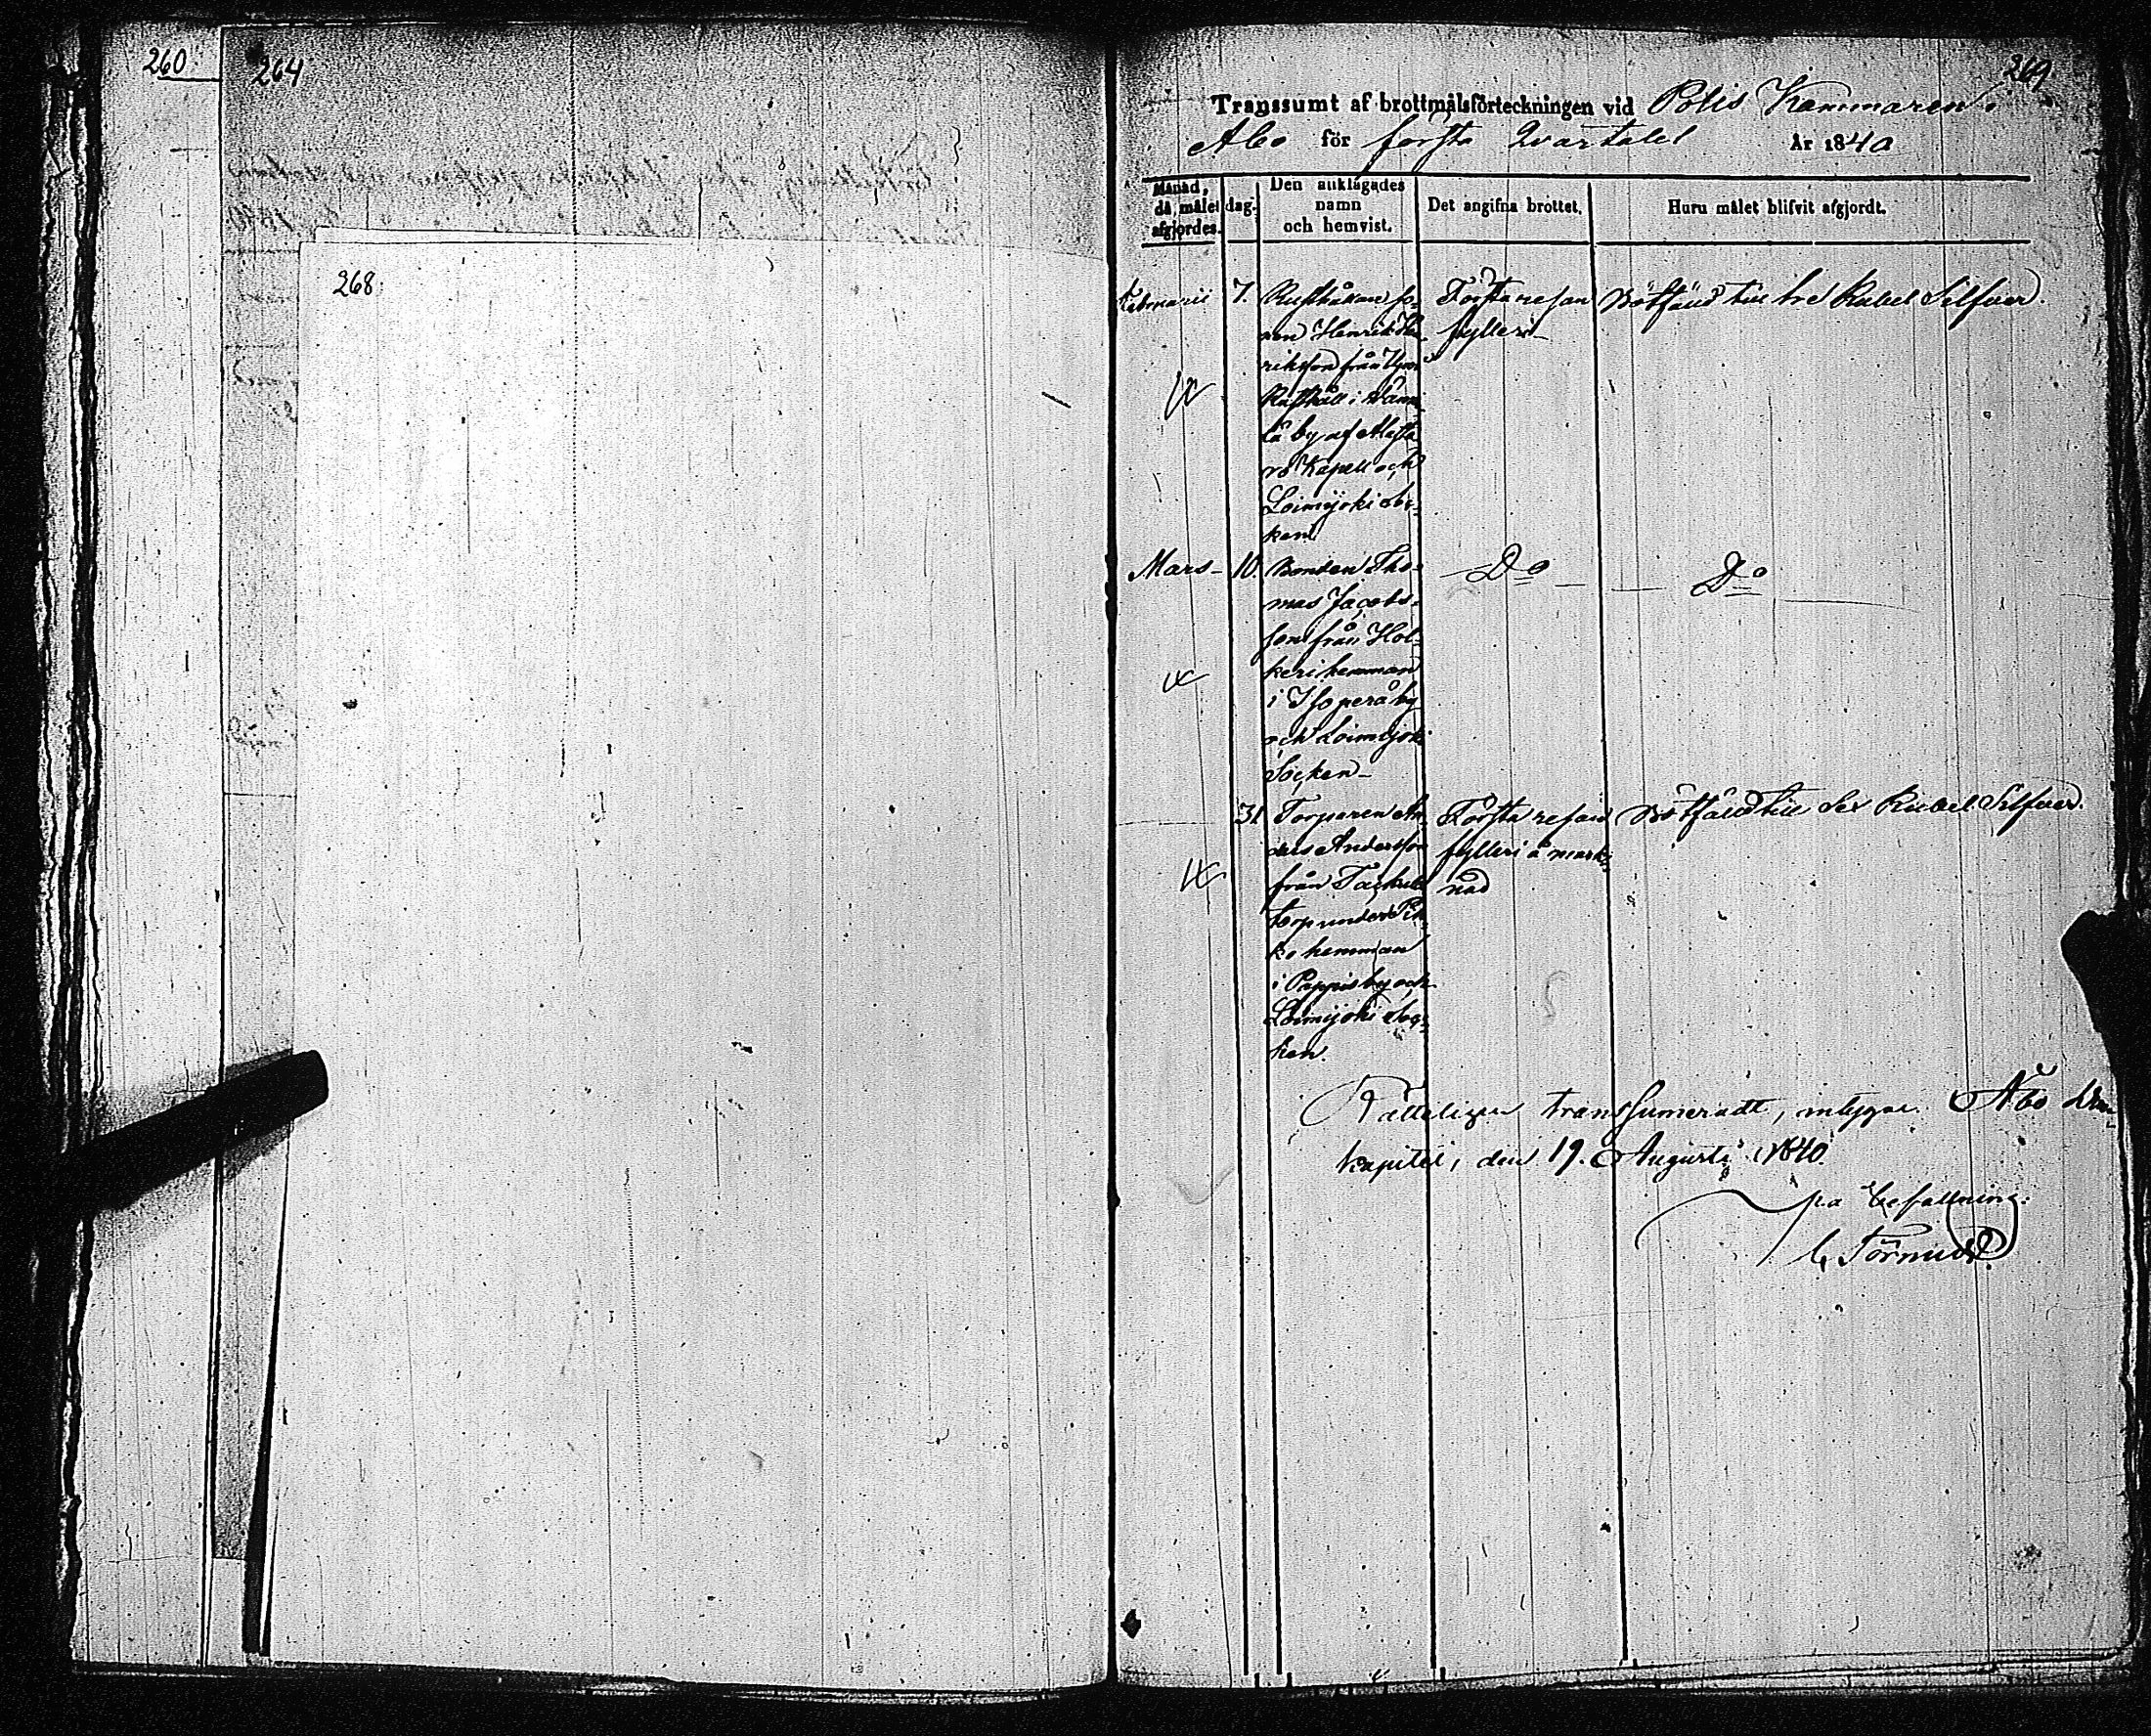 260.
264
268.
269
Transsumt af brottmålsförteckningen vid Polis Kammaren i
Åbo för första Qvartalet År 1840
Månad, då målet afgjordes.
dag.
Den anklagades namn och hemvist.
Det angifna brottet.
Huru målet blifvit afgjordt.
Februarii 7. Rusthållaren so-
nen Henrik Hen-
riksson från
Rusthåll i
la by af Alasta-
ro Kapell och
Loimijoki Soc-
ken
Första resan
fylleri
Bötfäld till tre Rubel Silfver.
Mars 10. Bonden Tho-
mas Jacobs-
son från Hol-
keri hemman
i Isoperä by
och Loimijoki
Socken
Do
Do
31 Torparen An-
ders Andersson
från
torp under
ko hemman
i Pappis by och
Loimijoki Soc-
ken.
Första resan
fylleri å mark-
nad
Bötfäld till Sex Rubel Silfver.
Rätteligen transsumeradt, intygar. Åbo Dom-
kapitel, den 19. Augusti 1840.
på befallning: